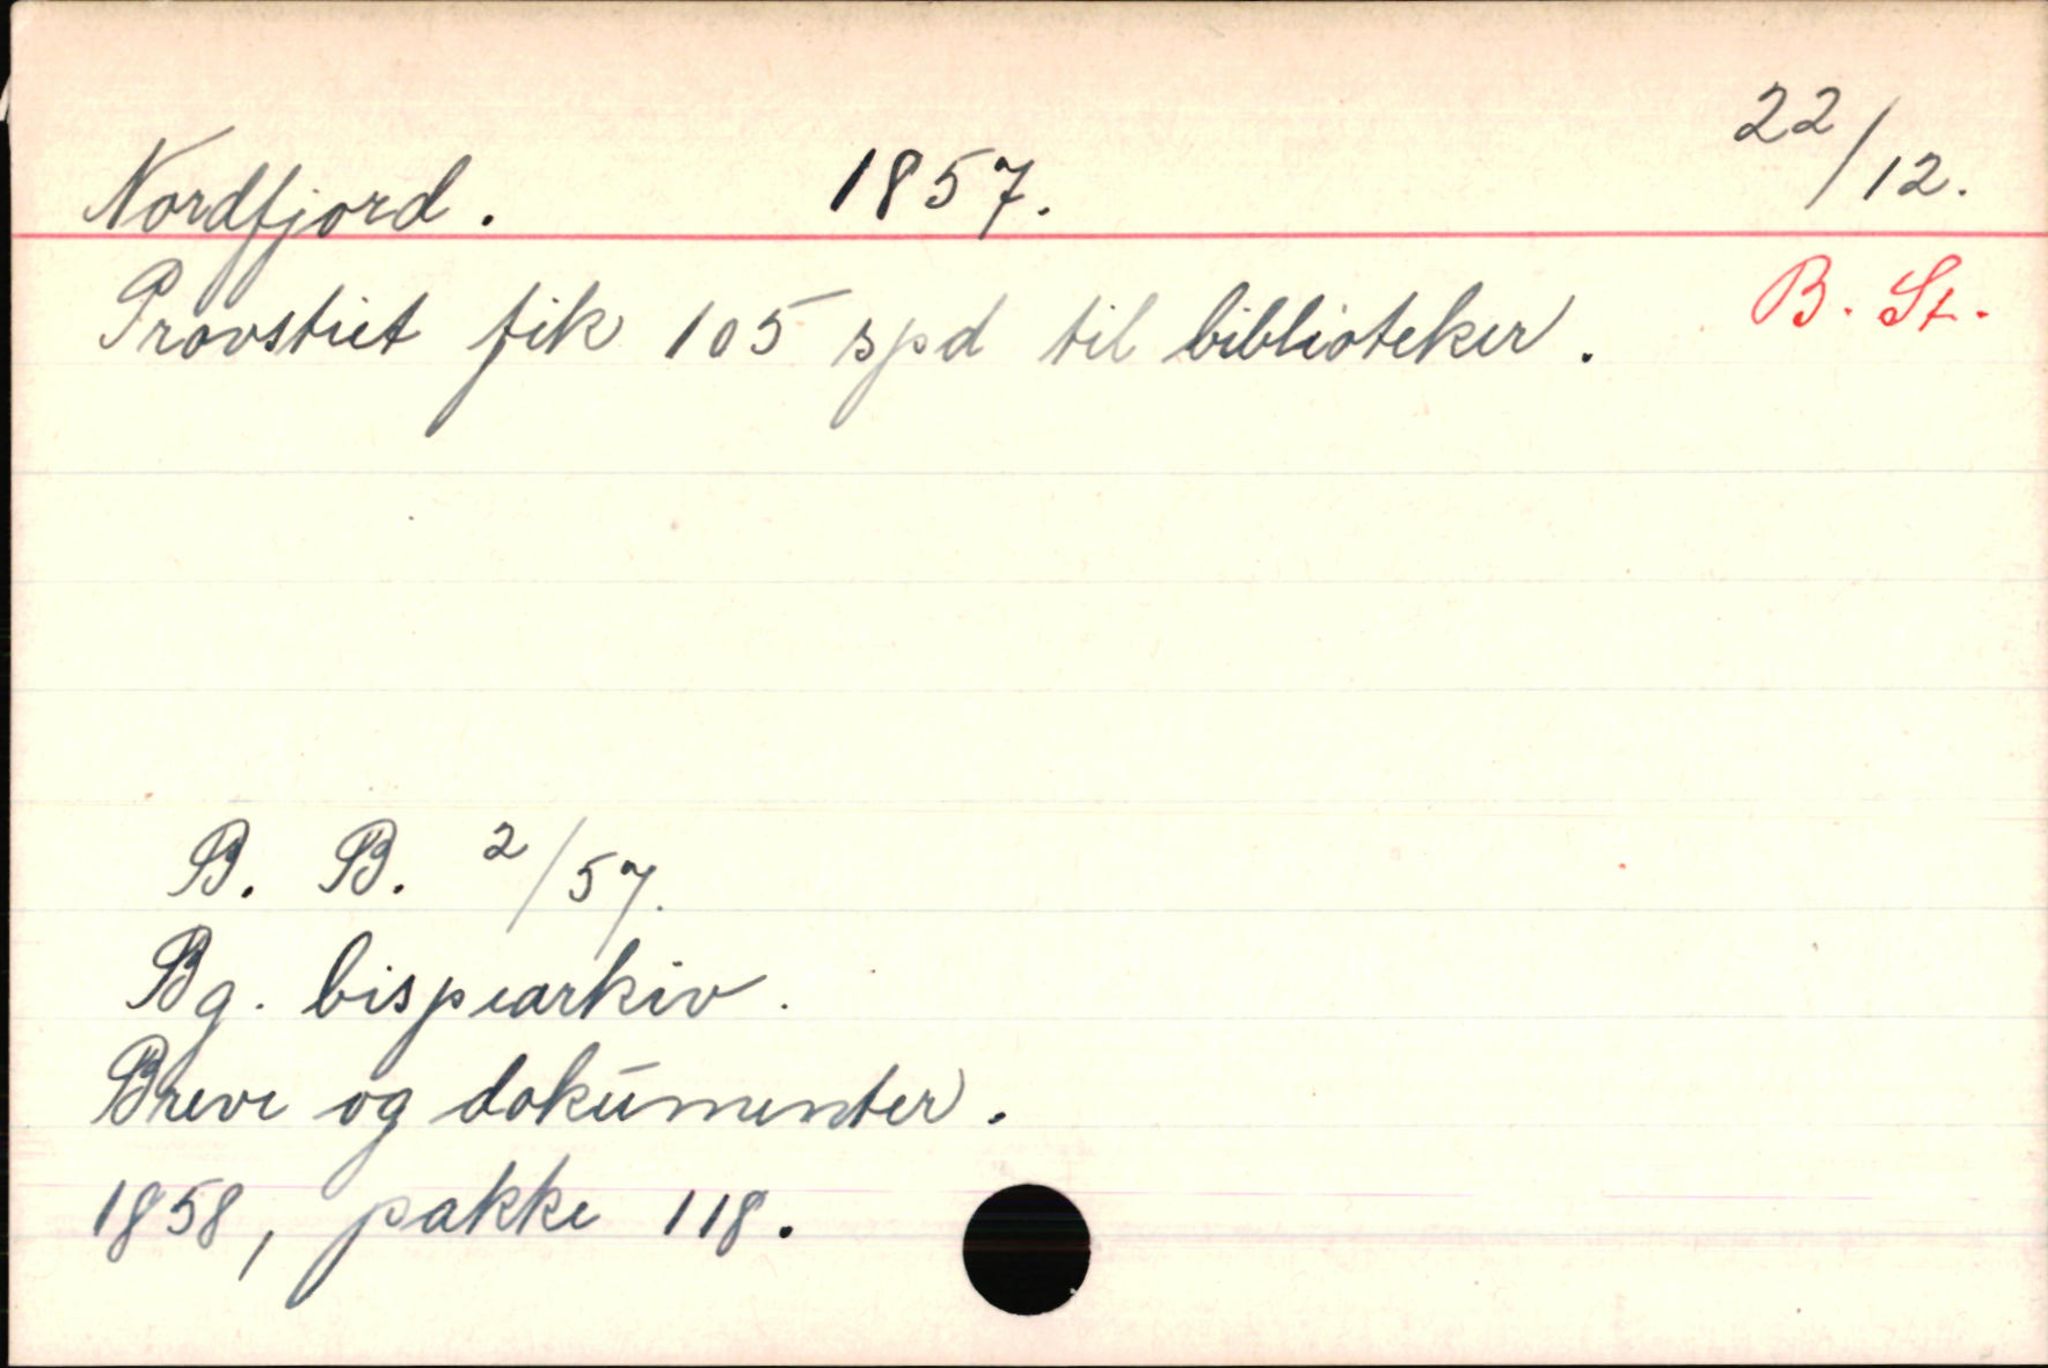 Nordfjord. 1857. 22/12.
Provstiet fik 105 spd til biblioteker. B. St.
B. B. 2/57.
Bg. bispearkiv.
Breve og dokumenter.
1858, pakke 118.